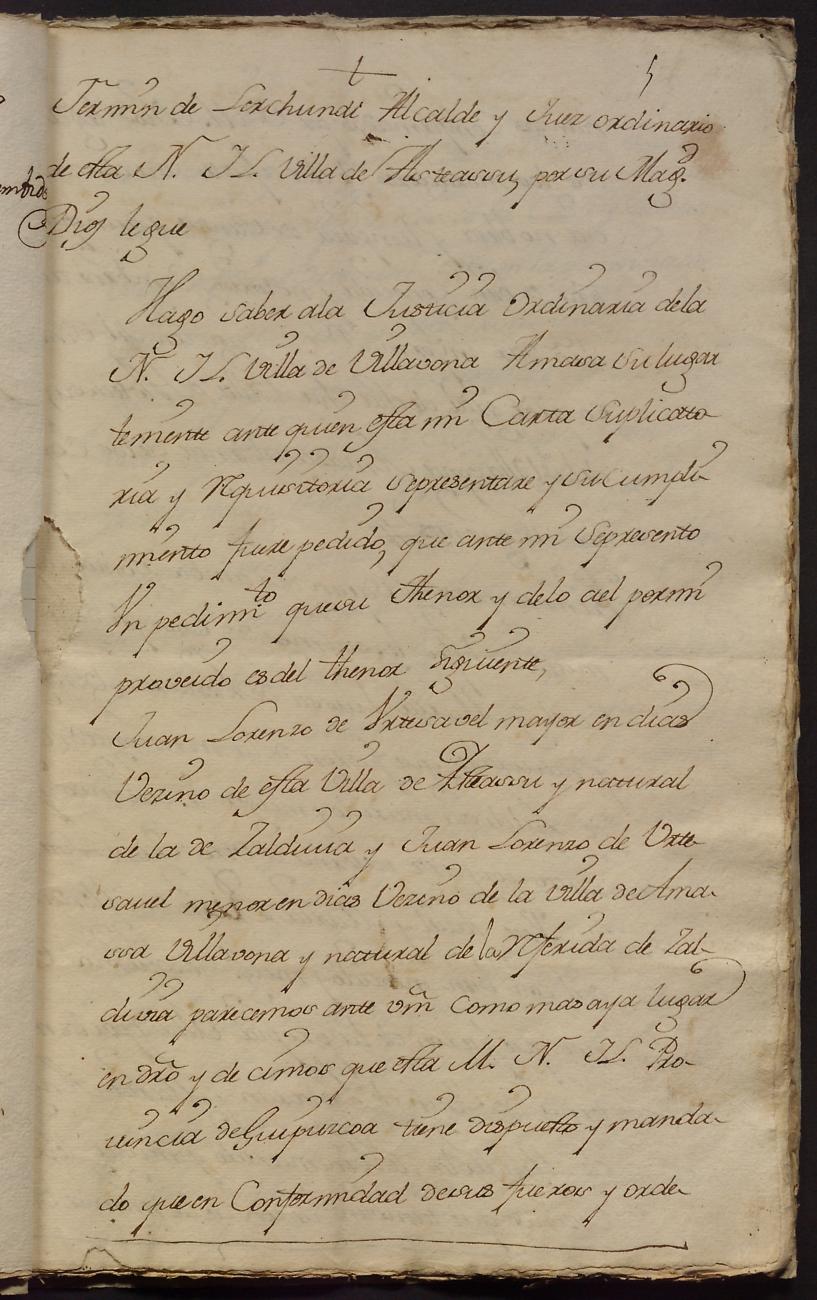 t 5
Fermin de Lerchundi Alcalde y Juez ordinario
de esta N. Y L. Villa de Asteassu, por su Magd.
Dios legue
Hago saber ala Justicia Ordinaria dela
N. Y L. Villa de Villavona Amasa su lugar
teniente ante quien esta mi Carta suplicato
ria y Requisitoria sepresentare y su Cumpli-
miento fuere pedido, que ante mi sepresento
Un pedimito quesu thenor y delo ael por mi
proveido es del thenor siguiente,
Juan Lorenzo de Vrtesavel mayor en dias
Vezino de esta Villa de Asteassu y natural
de la de Zalduvia y Juan Lorenzo de Urte-
sauel menor en dias Vezino de la Villa de Ama-
ssa Villavona y natural de la Referida de Zal-
duvia parecemos ante vm como mas aya lugar
en dro y decimos que esta M. N. Y L. Pro-
uincia de Guipuzcoa tiene dispuesto y manda-
do que en Conformidad desus fueros y orde-